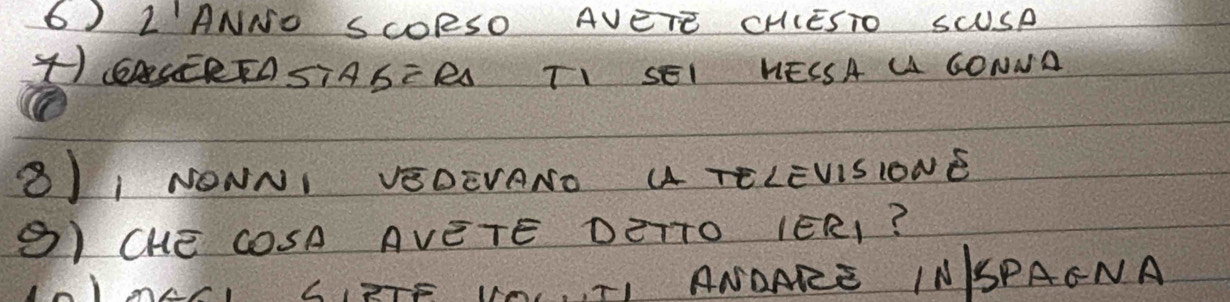 6) L'ANNO SCORSO AVETE CHIESTO SCUSA
7) STASERA TI SEI MESSA LA GONNA
8) I NONNI VEDEVANO LA TELEVISIONE
9) CHE COSA AVETE DETTO IERI?
SIETE ANDARE IN SPAGNA